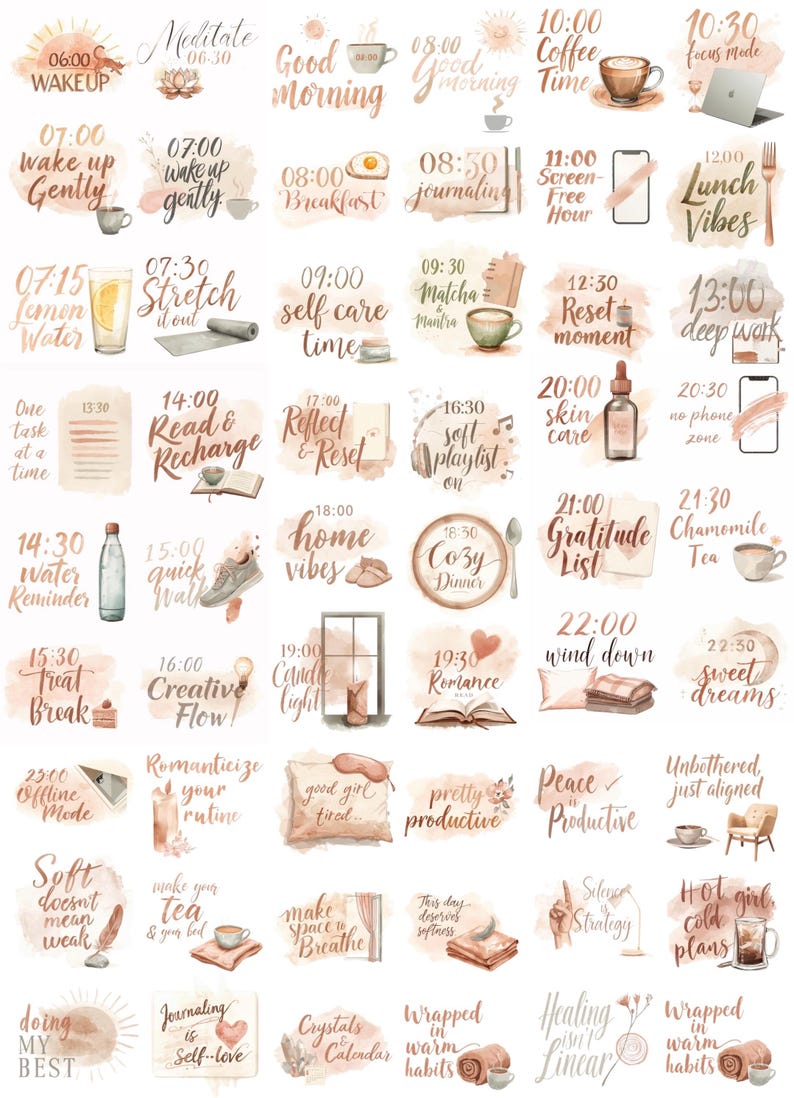 06:00
WAKEUP
Meditate
06:30
Good
08:00
Morning
08:00
Good
morning
10:00
Coffee
Time
10:30
focus mode
07:00
wake up
Gently
07:00
wake up
gently.
08:00
Breakfast
08:30
journaling
11:00
Screen-
Free
Hour
12.00
Lunch
Vibes
07:15
Lemon
Water
07:30
Stretch
it out
09:00
self care
time
09:30
Matcha
&
Mantra
12:30
Reset
moment
13:00
deep work
One
task
at a
time
13:30
14:00
Read &
Recharge
17:00
Reflect
& Reset
16:30
soft
playlist
on
20:00
skin
care
20:30
no phone
zone
14:30
water
Reminder
15:00
quick
Walk
18:00
home
vibes
18:30
Cozy
Dinner
21:00
Gratitude
List
21:30
Chamomile
Tea
15:30
Treat
Break
16:00
Creative
Flow
19:00
Candle
light
19:30
Romance
READ
22:00
wind down
22:30
sweet
dreams
23:00
Offline
Mode
Romanticize
your
rutine
good girl
tired..
pretty
productive
Peace
is
Productive
Unbothered,
just aligned
Soft
doesn't
mean
weak
make your
tea
& your bed
make
space to
Breathe
This day
deserves
softness
Silence
is
Strategy
Hot girl,
cold
plans
doing
MY
BEST
Journaling
is
Self--love
Crystals
&
Calendar
Wrapped
in
warm
habits
Healing
isn't
Linear
Wrapped
in
warm
habits